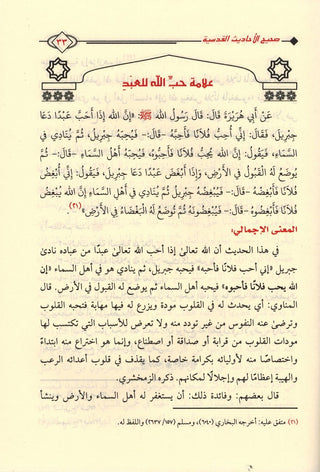 صحيح الأحاديث القدسية
٣٣
علامة حب الله للعبد
عَنْ أَبِي هُرَيْرَةَ قَالَ: قَالَ رَسُولُ اللهِ ﷺ «إِنَّ اللهَ إِذَا أَحَبَّ عَبْدًا دَعَا
جِبْرِيلَ، فَقَالَ: إِنِّي أُحِبُّ فُلَانًا فَأَحِبَّهُ –قَالَ:– فَيُحِبُّهُ جِبْرِيلُ، ثُمَّ يُنَادِي فِي
السَّمَاءِ، فَيَقُولُ: إِنَّ اللهَ يُحِبُّ فُلَانًا فَأَحِبُّوهُ، فَيُحِبُّهُ أَهْلُ السَّمَاءِ –قَالَ:– ثُمَّ
يُوضَعُ لَهُ الْقَبُولُ فِي الْأَرْضِ، وَإِذَا أَبْغَضَ عَبْدًا دَعَا جِبْرِيلَ، فَيَقُولُ: إِنِّي أُبْغِضُ
فُلَانًا فَأَبْغِضْهُ –قَالَ:– فَيُبْغِضُهُ جِبْرِيلُ ثُمَّ يُنَادِي فِي أَهْلِ السَّمَاءِ إِنَّ اللهَ يُبْغِضُ
فُلَانًا فَأَبْغِضُوهُ –قَالَ:– فَيُبْغِضُونَهُ ثُمَّ تُوضَعُ لَهُ الْبَغْضَاءُ فِي الْأَرْضِ»(٢١).
المعنى الإجمالي:
في هذا الحديث أن الله تعالى إذا أحب الله تعالى عبدًا من عباده نادى
جبريل «إني أحب فلانًا فأحبه» فيحبه جبريل، ثم ينادي هو في أهل السماء «إن
الله يحب فلانًا فأحبوه» فيحبه أهل السماء ثم يوضع له القبول في الأرض. قال
المناوي: أي يحدث له في القلوب مودة ويزرع له فيها مهابة فتحبه القلوب
وترضى عنه النفوس من غير تودد منه ولا تعرض للأسباب التي تكتسب لها
مودات القلوب من قرابة أو صداقة أو اصطناع، وإنما هو اختراع منه ابتداءً
واختصاصًا منه لأوليائه بكرامة خاصة، كما يقذف في قلوب أعدائه الرعب
والهيبة إعظامًا لهم وإجلالًا لمكانهم. ذكره الزمخشري.
قال بعضهم: وفائدة ذلك: أن يستغفر له أهل السماء والأرض وينشأ
(٢١) متفق عليه: أخرجه البخاري (٦٠٤٠)، ومسلم (٢٦٣٧/١٥٧) واللفظ له.